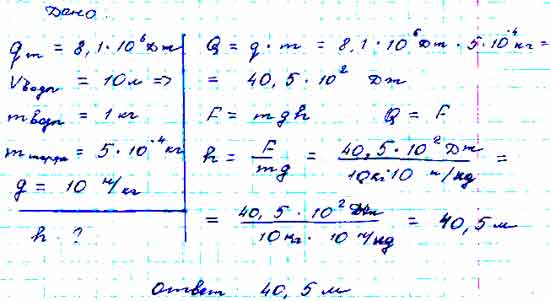 Дано:
q_т = 8,1·10⁶ Дж
V воды = 10 л =>
m воды = 1 кг
m = 5·10⁻⁴ кг
g = 10 м/кг
h - ?
Q = q·m = 8,1·10⁶ Дж · 5·10⁻⁴ кг =
= 40,5·10² Дж
F = mgh Q = F
h = F/mg = 40,5·10² Дж / 10кг·10 н/кд =
= 40,5·10² Дж / 10кг·10 н/кд = 40,5 м
Ответ 40,5 м